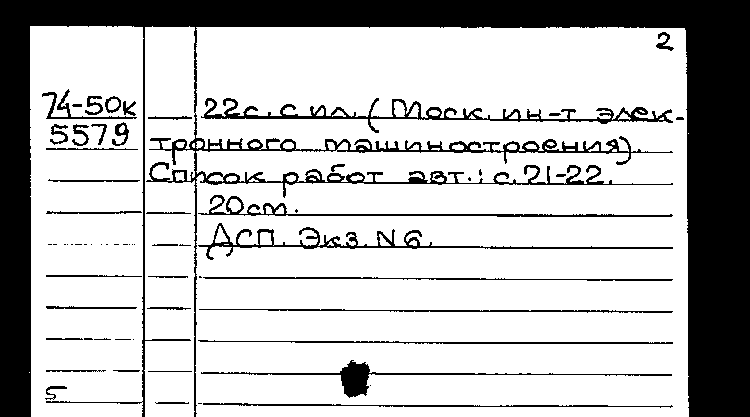 2
74-50к 22с. с ил. (Моск. ин-т элек-
5579 тронного машиностроения).
Список работ авт.: с. 21-22.
20 см.
ДСП. Экз. N 6.
5